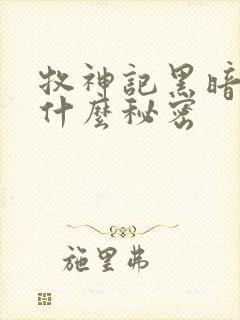 牧神記黑暗
什麼秘密
施里弗